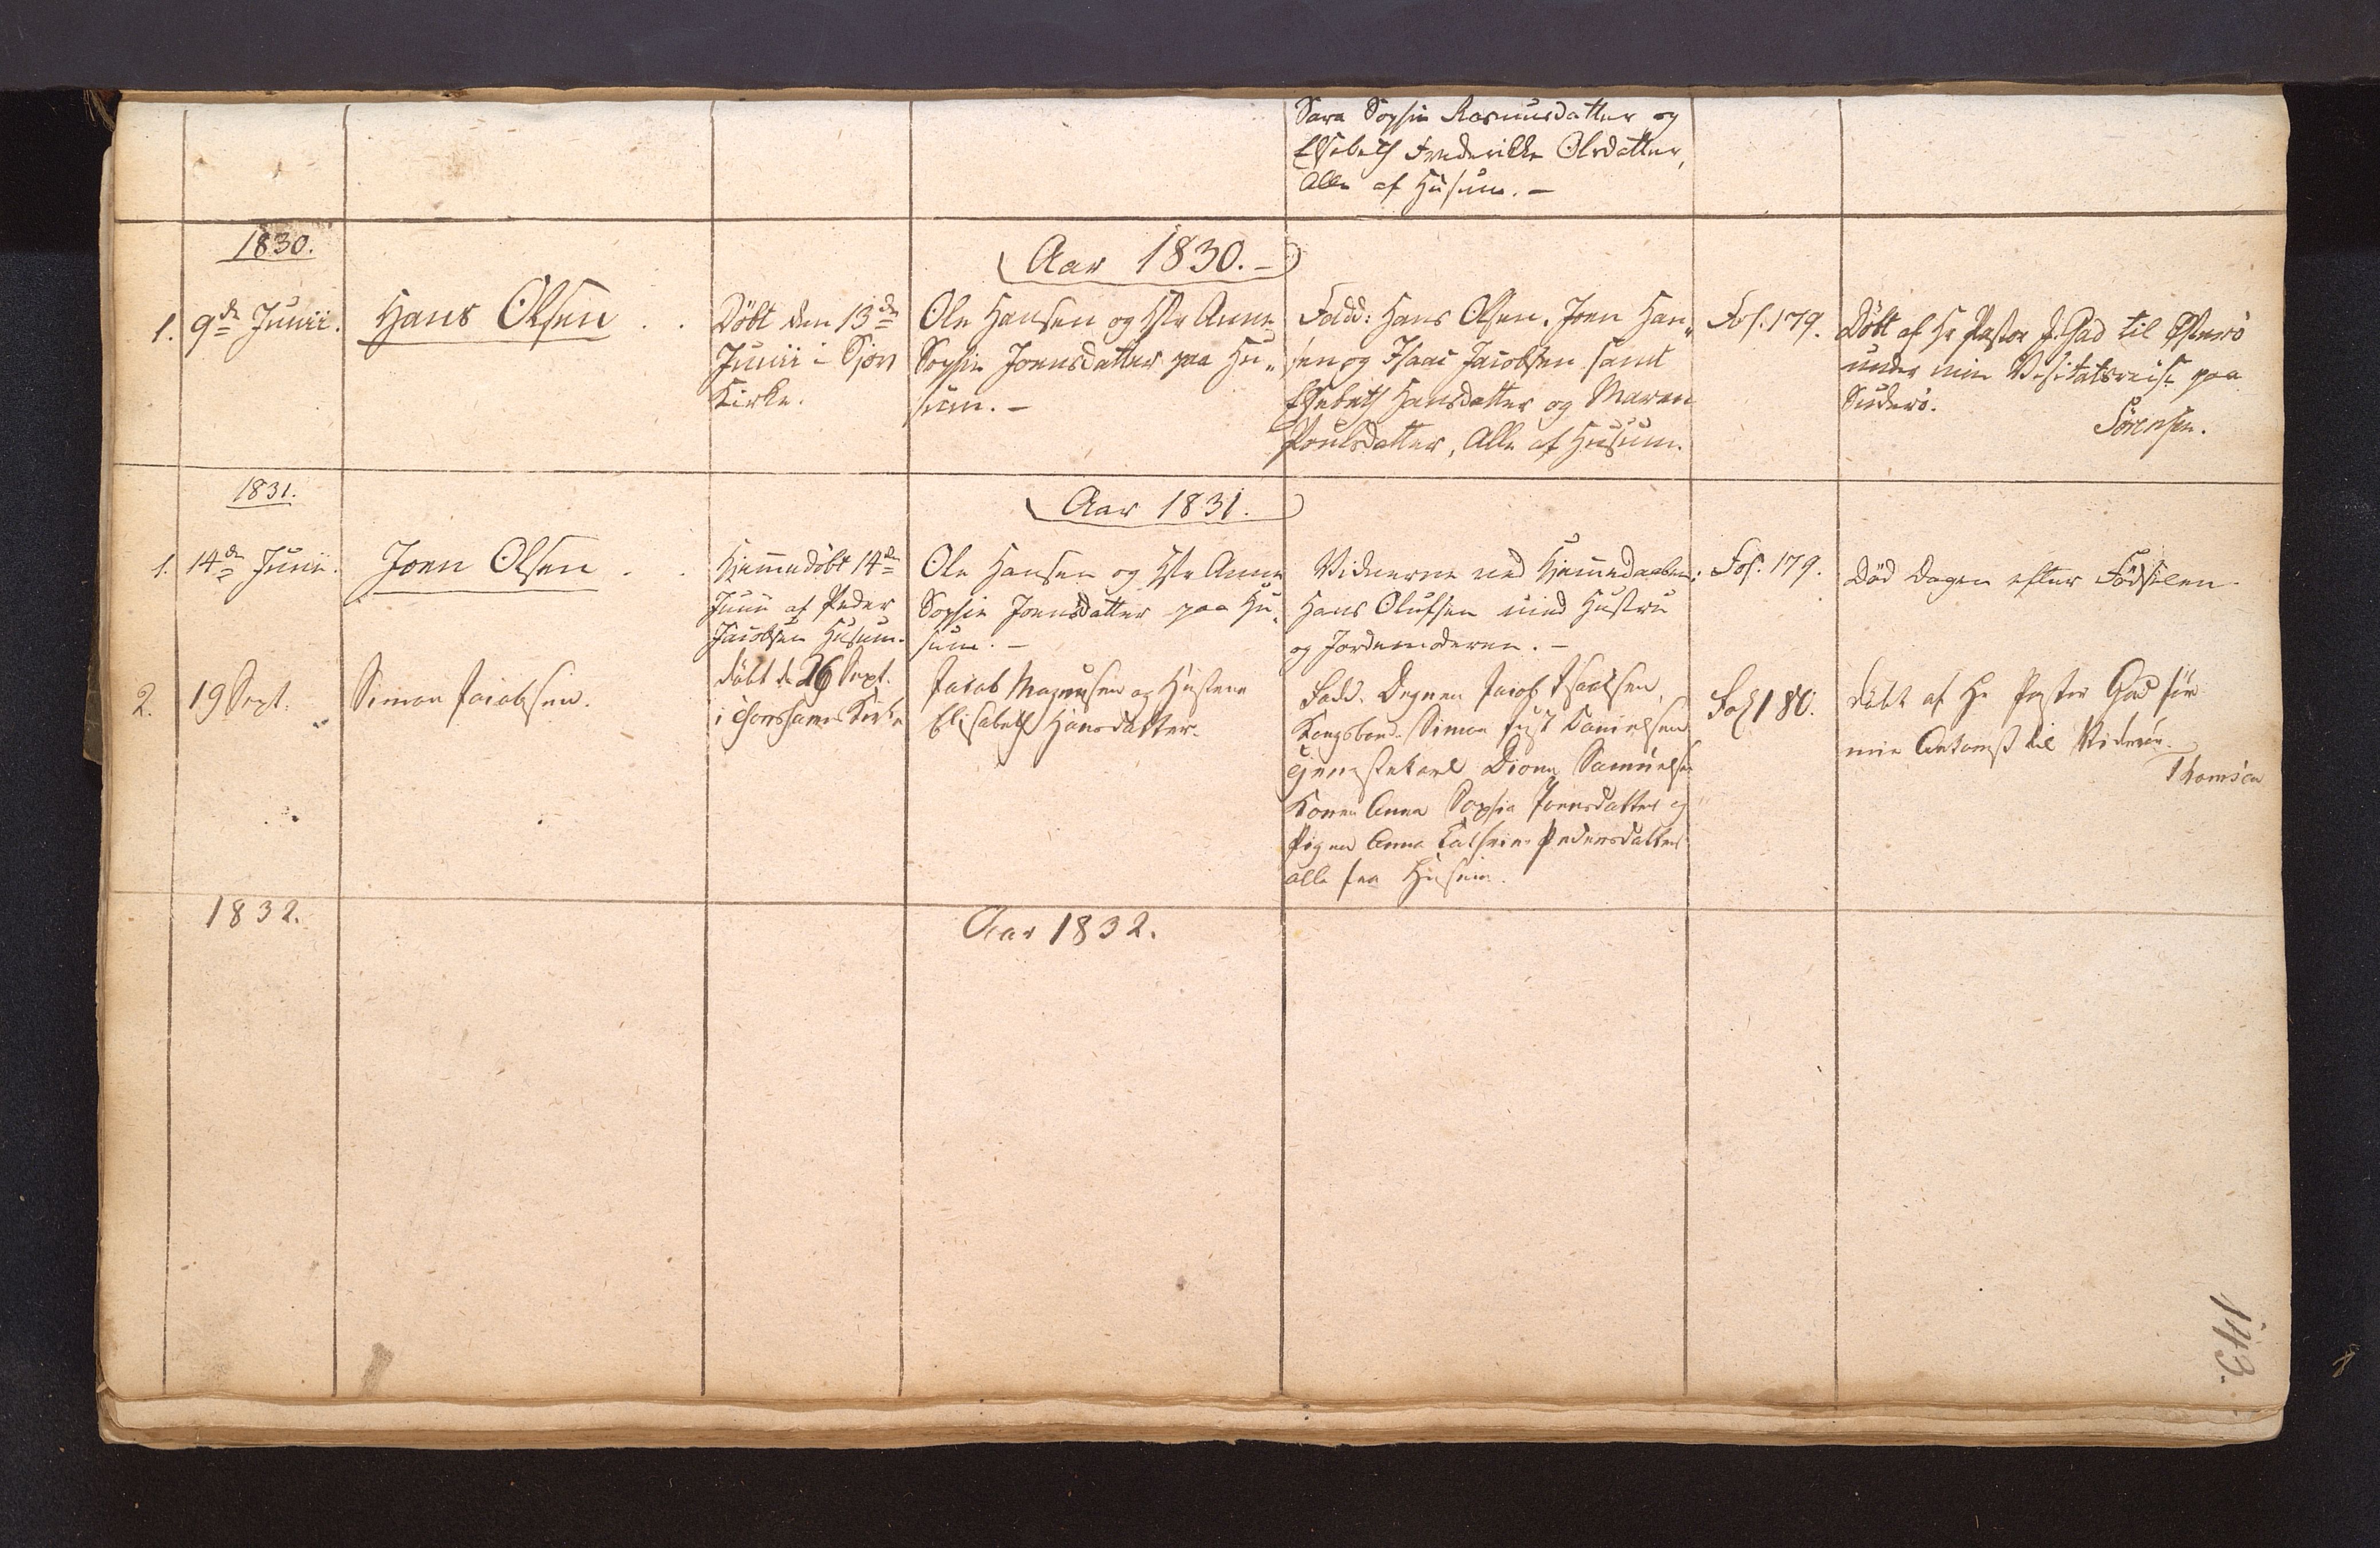 Sara Sophie Rasmusdatter og
Elsebeth Frederikke Olsdatter,
Alle af Husum. –
1830.
Aar 1830. –
1. 9de Junii.
Hans Olsen . .
Døbt den 13de
Junii i
Kirke.
Ole Hansen og Hstr Anne
Sophie Joensdatter paa Hu„
sum. –
Fadd: Hans Olsen, Joen Han„
sen og Isaac Jacobsen samt
Elsebeth Hansdatter og Maren
Poulsdatter, Alle af Husum.
Fol. 179.
Døbt af Hr Pastor Gad til Østerö
under min Visitatsreise paa
Suderö.
Sörensen.
1831.
Aar 1831.
1. 14de Junii.
Joen Olsen . .
Hjemmedøbt 14de
Junii af Peder
Jacobsen Husum.
Ole Hansen og Hstr Anne
Sophie Joensdatter paa Hu„
sum. –
Vidnerne ved Hjemmedaaben:
Hans Olufsen med Hustru
og Jordemoderen. –
Fol. 179.
Død Dagen efter Fødselen
2. 19 Sept.
Simon Jacobsen.
døbt d. 26 Sept.
i Kirke
Jacob Magnusen og Hustrue
Elisabeth Hansdatter.
Fadd. Degnen Jacob Isaacsen,
Kongsbond. Simon Danielsen
Tjenestekarl Samuelsen
Konen Anna Sophia Joensdatter og
Pigen Anna Cathrine Pedersdatter
alle fra Husum.
Fol 180.
døbt af Hr Pastor Gad før
min Ankomst til Videröe.
Thomsen
1832.
Aar 1832.
143.